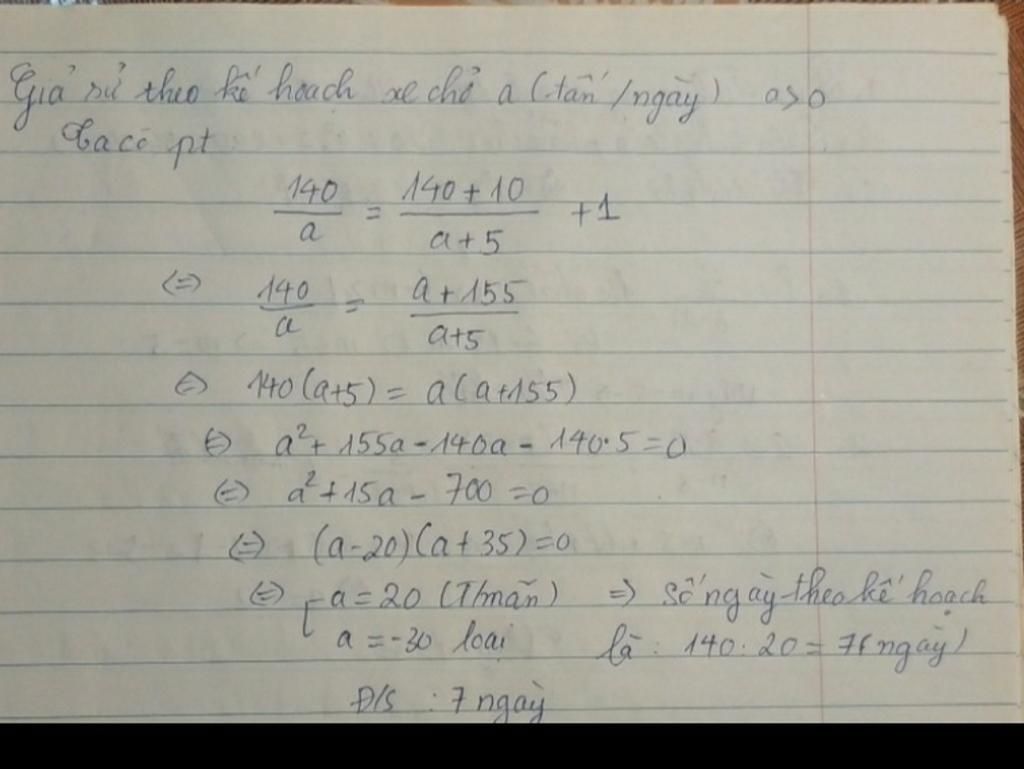 Giả sử theo kế hoạch xe chở a (tấn/ngày) a>0
Ta có pt
140/a = (140+10)/(a+5) +1
(=) 140/a = (a+155)/(a+5)
(=) 140(a+5) = a(a+155)
(=) a²+155a-140a-140.5=0
(=) a²+15a-700=0
(=) (a-20)(a+35)=0
(=) [ a=20 (T/mãn) => Số ngày theo kế hoạch
a=-30 loại là: 140:20=7(ngày)
Đ/S : 7 ngày